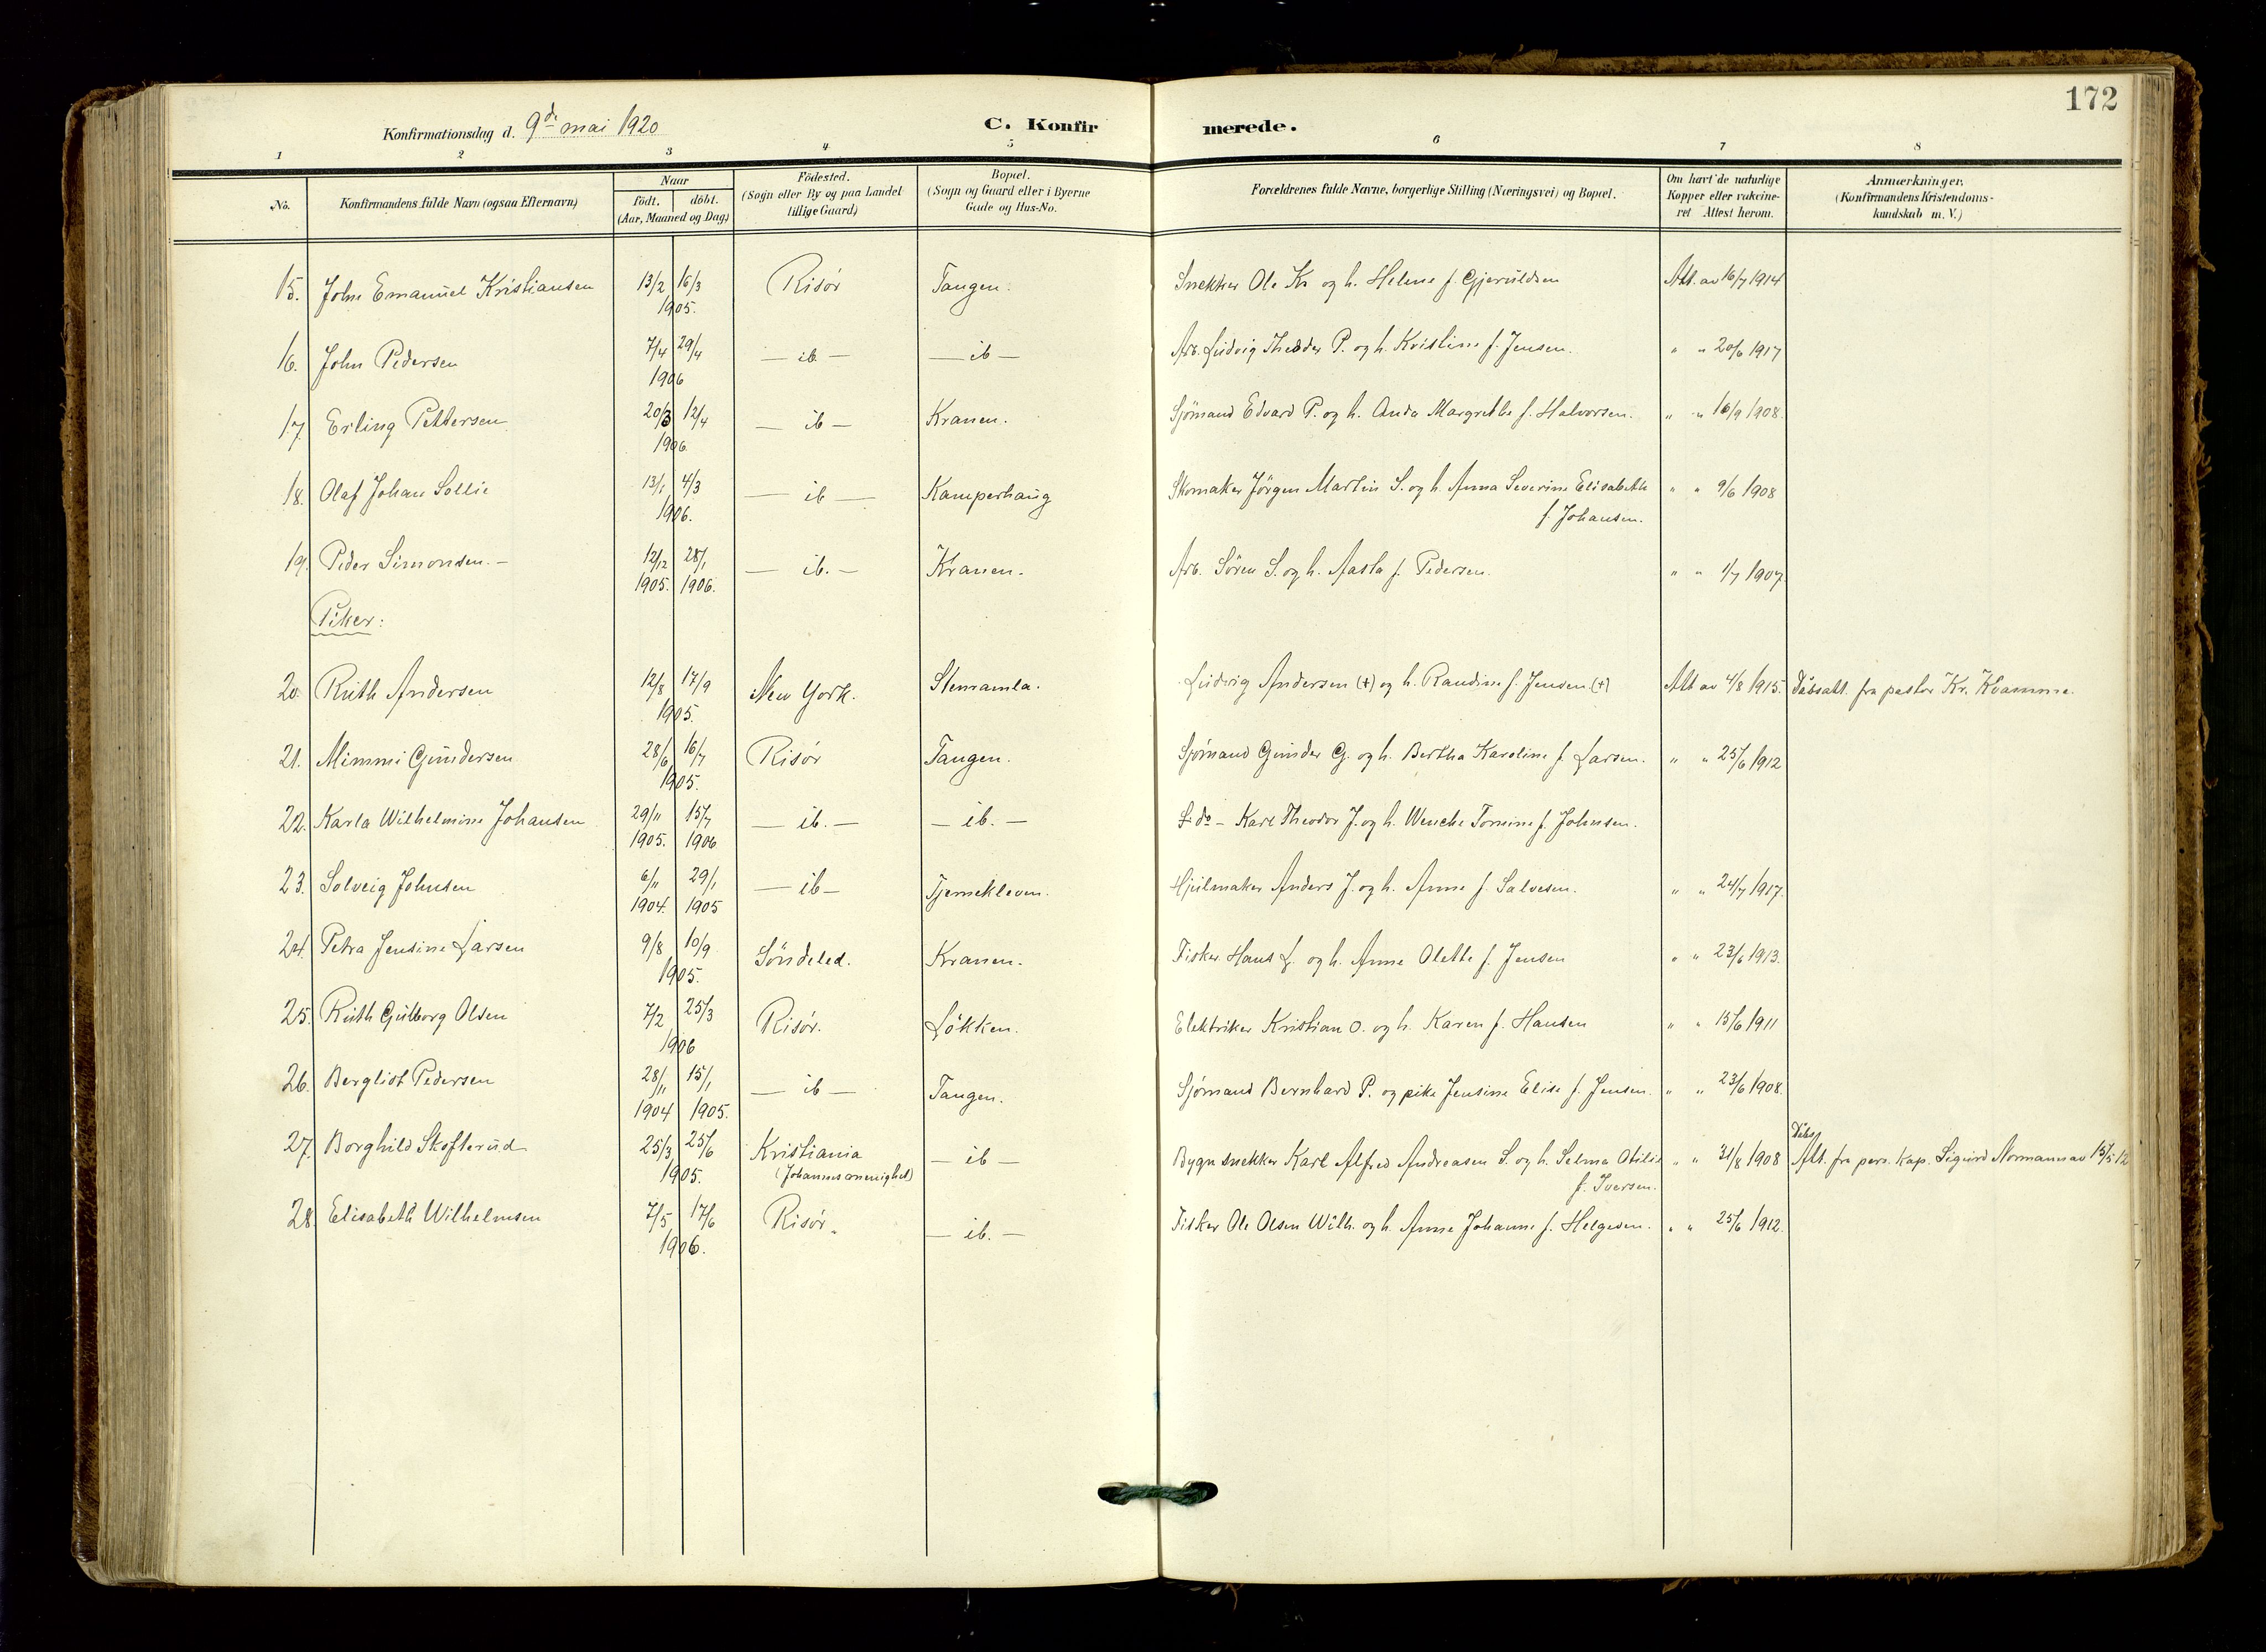 172
Konfirmationsdag d. 9de mai 1920
C. Konfirmerede.
1 2 3 4 5 6 7 8
No.
Konfirmandens fulde Navn (ogsaa Efternavn)
Naar
født. døbt.
(Aar, Maaned og Dag)
Fødested.
(Sogn eller By og paa Landet
tillige Gaard)
Bopæl.
(Sogn og Gaard eller i Byerne
Gade og Hus-No.
Forældrenes fulde Navne, borgerlige Stilling (Næringsvei) og Bopæl.
Om havt de naturlige
Kopper eller vakcine-
ret Attest herom.
Anmærkninger,
(Konfirmandens Kristendoms-
kundskab m. V.)
15. John Emanuel Kristiansen 13/2 16/3 Risør Tangen. Snekker Ole Kr og h. Helene f. Gjeruldsen Att. av 16/7 1914
1905.
16. John Pedersen 7/4 29/4 — ib — — ib — Arb. Ludvig Theodor P. og h. Kristine f. Jensen. " " 20/6 1917
1906
17. Erling Pettersen 20/3 12/4 — ib — Kranen. Sjømand Edvard P. og h. Anda Margrethe f. Halvorsen. " " 16/9 1908.
1906
18. Olaf Johan Sollie 13/1 4/3 — ib — Kamperhaug Skomaker Jörgen Martin S. og h. Anna Severine Elisabeth " " 9/6 1908
1906. f. Johansen.
19. Peder Simonsen. – 12/12 28/1 — ib. — Kranen. Arb. Sören S. og h. Aasta f. Pedersen. " " 1/7 1907.
1905. 1906.
Piker:
20. Ruth Andersen 12/8 17/9 New York. Stensamla. Ludvig Andersen (+) og h. Randine f. Jensen (+) Att av 4/8 1915. Dåbsatt. fra pastor Kr. Kvamme.
1905.
21. Mimmi Gundersen 28/6 16/7 Risør Tangen. Sjømand Gunder G. og h. Bertha Karoline f. Larsen. " " 25/6 1912
1905.
22. Karla Wilhelmine Johansen 29/11 15/7 — ib. — — ib. — do – Karl Theodor J. og h. Wenche Tomine f. Johnsen.
1905. 1906
23. Solveig Johnsen 6/11 29/1 — ib — Tjernekleven. Hjulmaker Anders J. og h. Anne f. Salvesen. " " 24/7 1917.
1904. 1905
24. Petra Jensine Larsen 9/8 10/9 Söndeled. Kranen. Fisker Hans L. og h. Anne Olette f. Jensen " " 23/6 1913.
1905.
25. Ruth Gulborg Olsen 7/2 25/3 Risør. Lökken. Elektriker Kristian O. og h. Karen f. Hansen " " 15/6 1911
1906
26. Bergliot Pedersen 28/11 15/1 — ib — Tangen. Sjømand Bernhard P. og pike Jensine Elise f. Jensen. " " 23/6 1908.
1904 1905.
27. Borghild Skofterud 25/3 25/6 Kristiania — ib — Bygn snekker Karl Alfred Andreasen S. og h. Selma Otilie " " 31/8 1908 Dåbs Att. fra pers. kap. Sigurd Normann av 15/5 12
1905. (Johannes menighet) f. Iversen.
28. Elisabeth Wilhelmsen 7/5 17/6 Risør. — ib. — Fisker Ole Olsen Wilh. og h. Anne Johanne f. Helgesen. " " 25/6 1912.
1906.